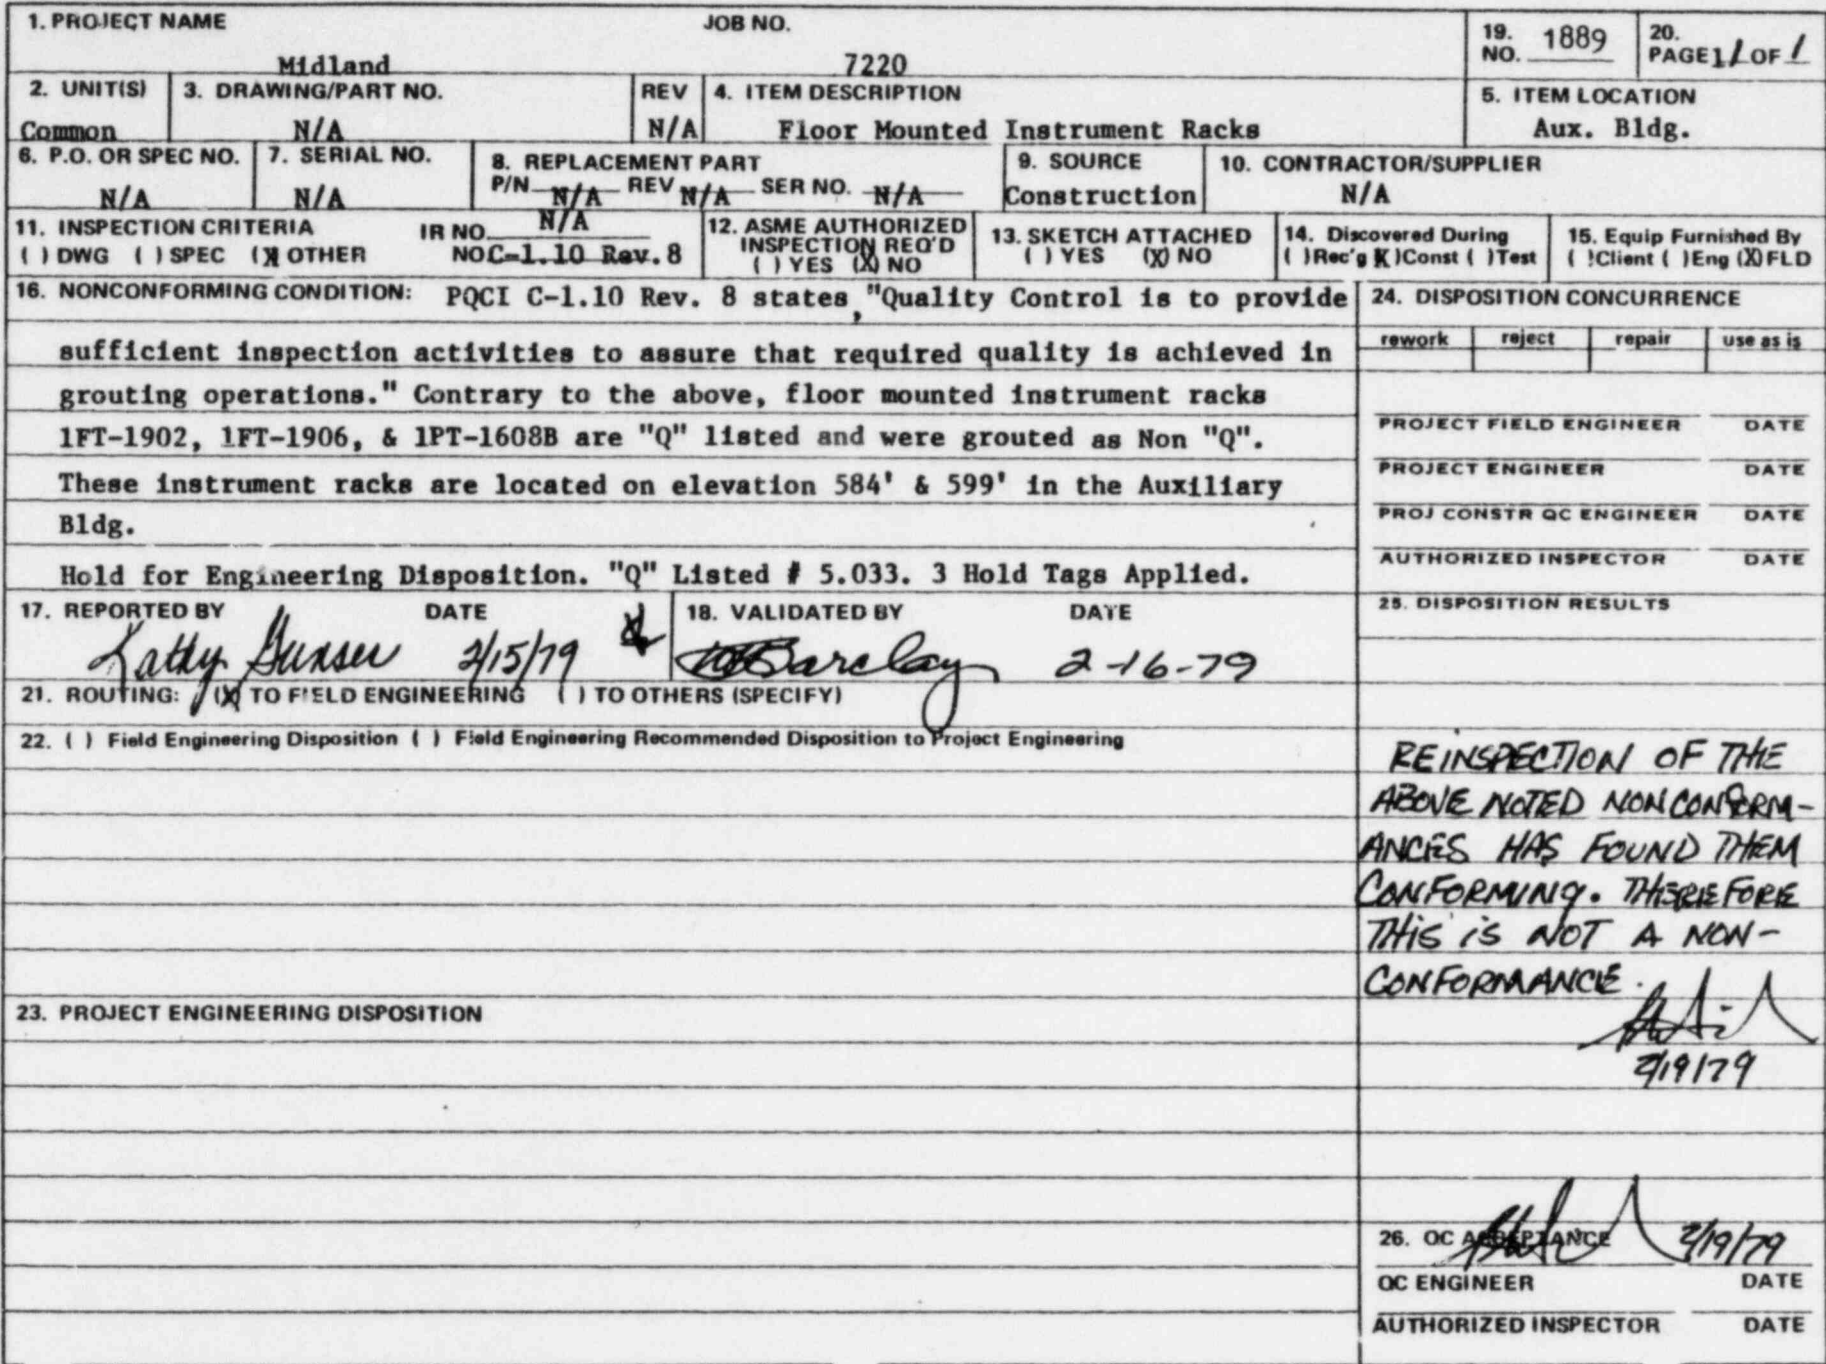 1. PROJECT NAME JOB NO. 19. NO. 1889 20. PAGE 1 OF 1
Midland 7220
2. UNIT(S) 3. DRAWING/PART NO. REV 4. ITEM DESCRIPTION 5. ITEM LOCATION
Common N/A N/A Floor Mounted Instrument Racks Aux. Bldg.
6. P.O. OR SPEC NO. 7. SERIAL NO. 8. REPLACEMENT PART 9. SOURCE 10. CONTRACTOR/SUPPLIER
N/A N/A P/N N/A REV N/A SER NO. N/A Construction N/A
11. INSPECTION CRITERIA IR NO. N/A 12. ASME AUTHORIZED INSPECTION REQ'D 13. SKETCH ATTACHED 14. Discovered During 15. Equip Furnished By
( ) DWG ( ) SPEC (X) OTHER NO C-1.10 Rev. 8 ( ) YES (X) NO ( ) YES (X) NO ( )Rec'g (X)Const ( )Test ( )Client ( )Eng (X)FLD
16. NONCONFORMING CONDITION: PQCI C-1.10 Rev. 8 states, "Quality Control is to provide
sufficient inspection activities to assure that required quality is achieved in
grouting operations." Contrary to the above, floor mounted instrument racks
1FT-1902, 1FT-1906, & 1PT-1608B are "Q" listed and were grouted as Non "Q".
These instrument racks are located on elevation 584' & 599' in the Auxiliary
Bldg.
Hold for Engineering Disposition. "Q" Listed # 5.033. 3 Hold Tags Applied.
17. REPORTED BY DATE 18. VALIDATED BY DATE
Kathy 2/15/79 Barclay 2-16-79
21. ROUTING: (X) TO FIELD ENGINEERING ( ) TO OTHERS (SPECIFY)
22. ( ) Field Engineering Disposition ( ) Field Engineering Recommended Disposition to Project Engineering
23. PROJECT ENGINEERING DISPOSITION
24. DISPOSITION CONCURRENCE
rework reject repair use as is
PROJECT FIELD ENGINEER DATE
PROJECT ENGINEER DATE
PROJ CONSTR QC ENGINEER DATE
AUTHORIZED INSPECTOR DATE
25. DISPOSITION RESULTS
REINSPECTION OF THE
ABOVE NOTED NONCONFORM-
ANCES HAS FOUND THEM
CONFORMING. THEREFORE
THIS IS NOT A NON-
CONFORMANCE.
2/19/79
26. QC ACCEPTANCE 2/19/79
QC ENGINEER DATE
AUTHORIZED INSPECTOR DATE